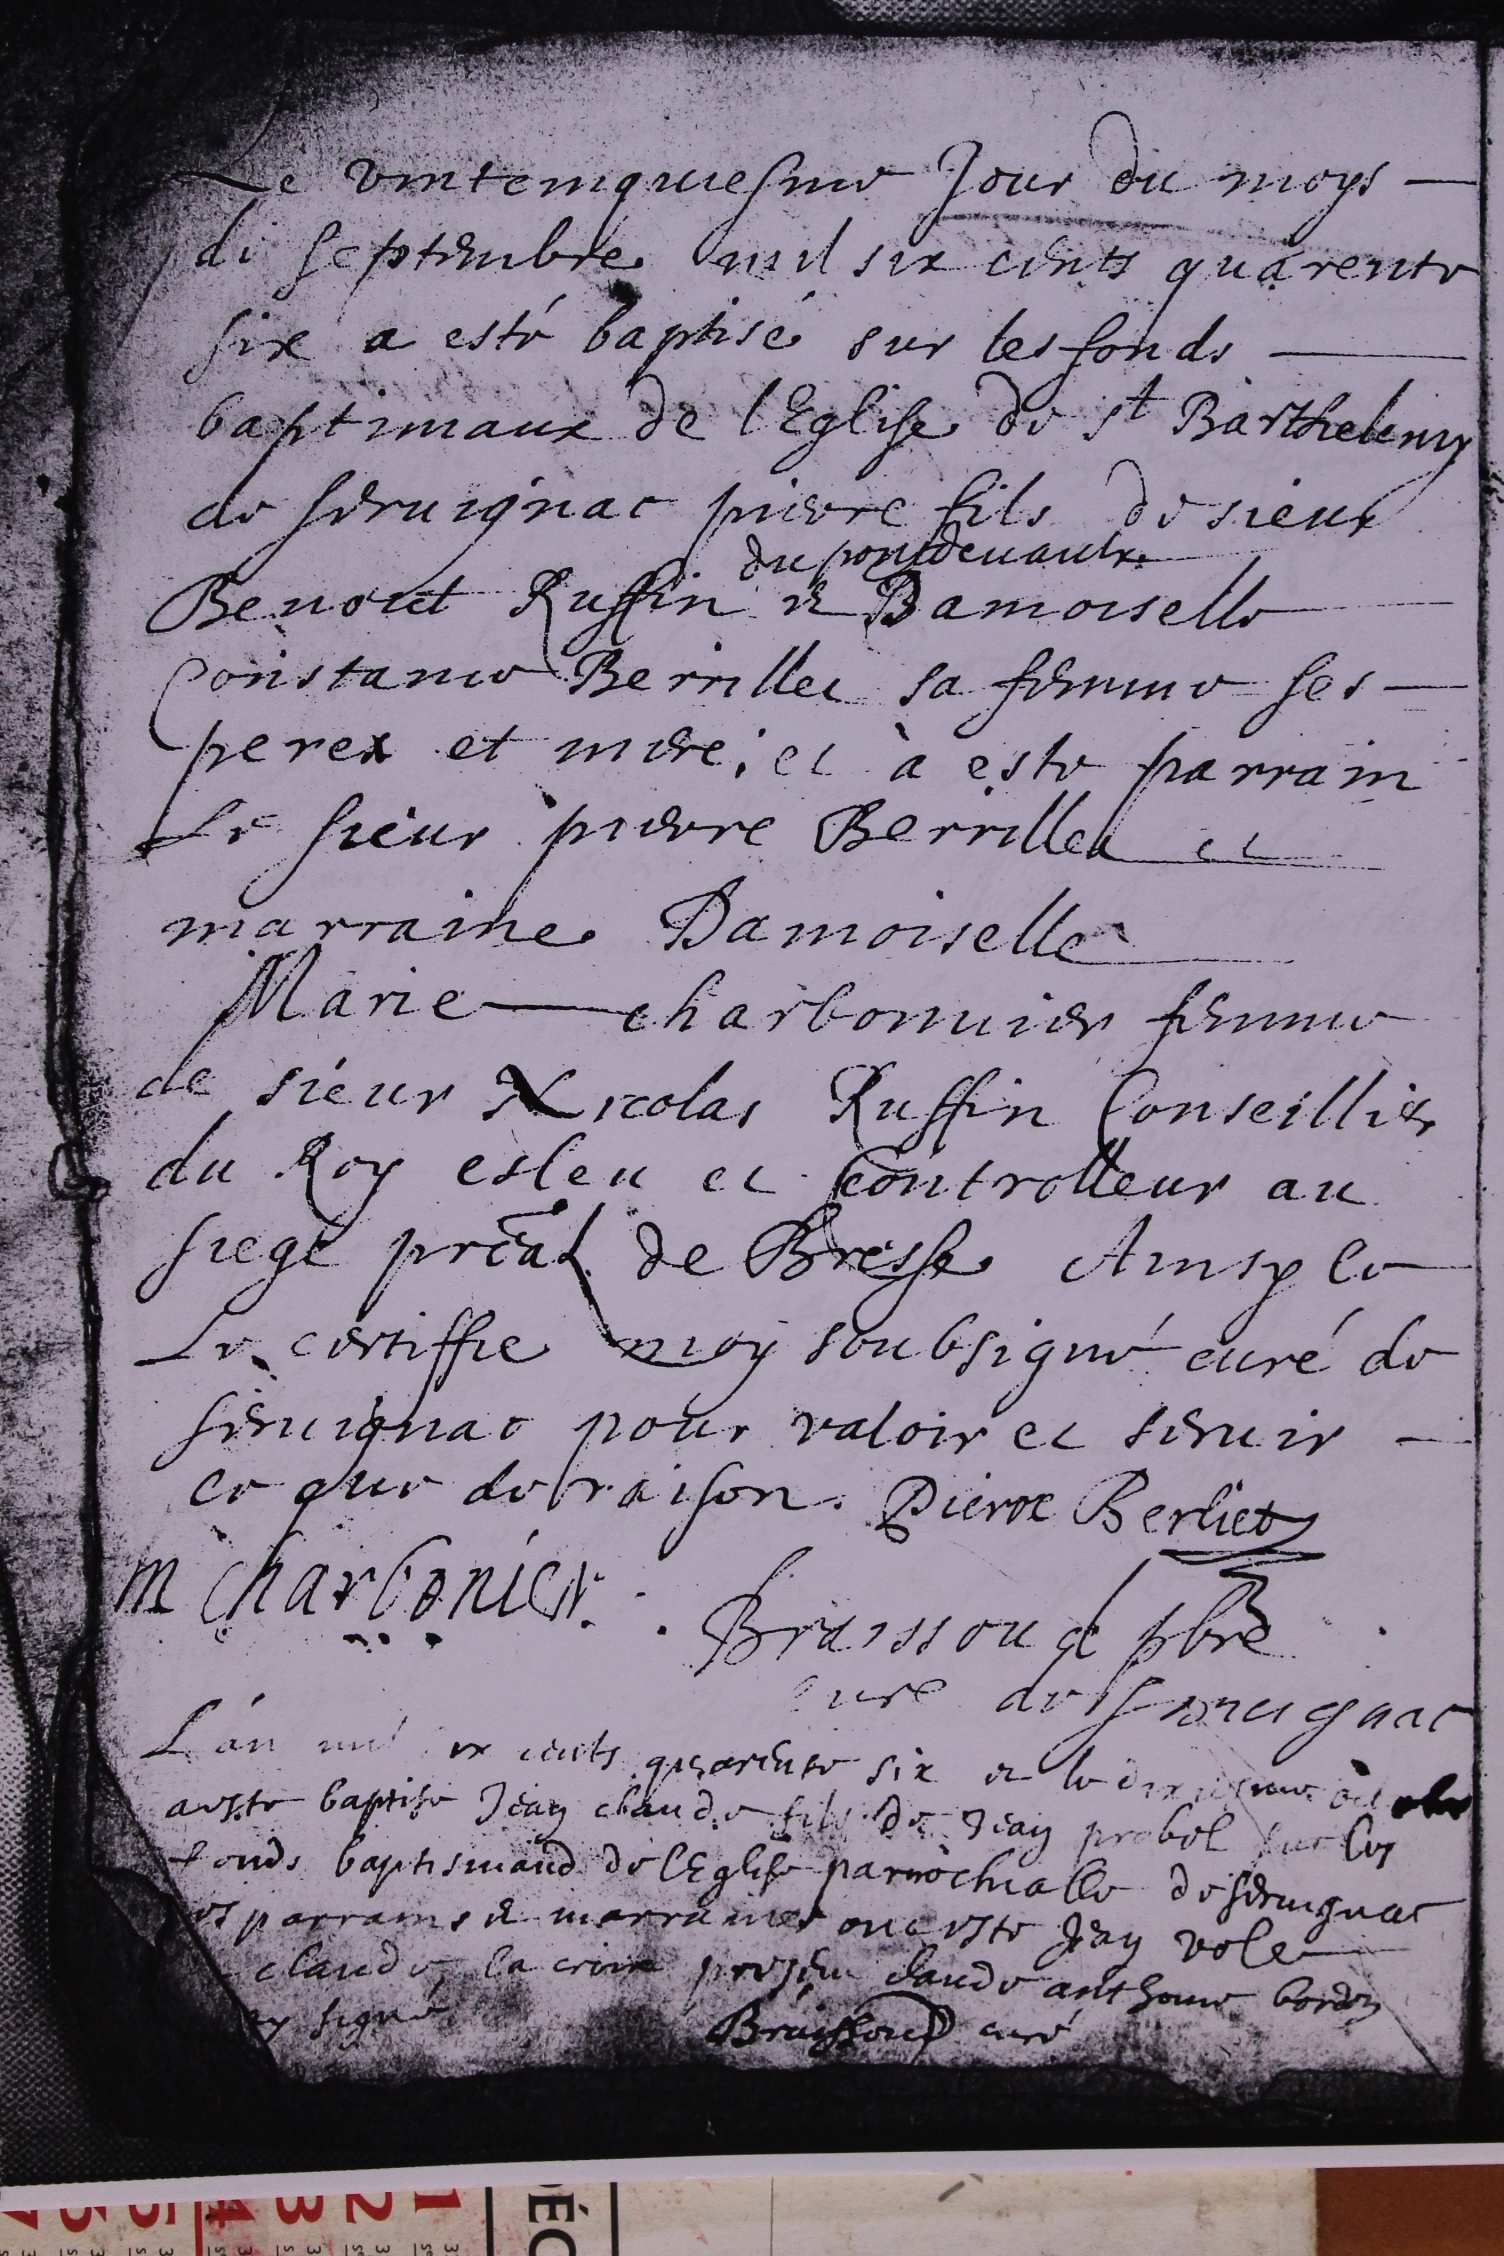 Le vintcinquiesme Jour du moys
de septembre mil six cents quarente
six a esté baptisé sur les fonds
baptimaux de l'Eglise de st Barthelemy
de servignac pierre fils de sieur
du pontdevaulx
Benoict Ruffin et Damoiselle
Constance Berrillet sa femme ses
peres et mere; et à esté parrain
Le sieur pierre Berrillet et
marraine Damoiselle
Marie charbonnier femme
de sieur Nicolas Ruffin Conseillier
du Roy esleu et Controlleur au
siege préal de Bresse Ainsy le
Le certiffie moy soubsigné curé de
servignac pour valoir et servir
ce que de raison. Pierre Berliet
m charbonier
Braissoud pbre
curé de servignac
L'an mil six cents quarente six et le
a esté baptisé Jean claude fils de Jean probel sur les
fonds baptismaud de l'Eglise parrochialle de servignac
parrains et marraines ont esté Jean vole
claude la croix presen claude anthoine bordon
signé Braissoud curé
2
3
4
5
1
2
3
DÉC